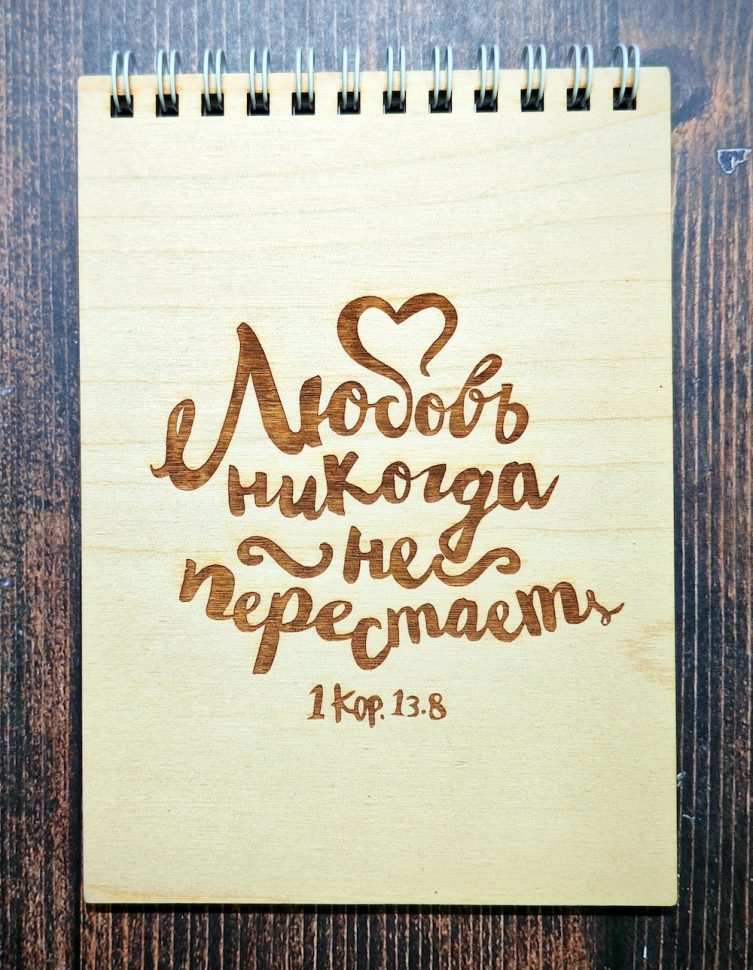 Любовь
никогда
не
перестает
1 Кор. 13.8